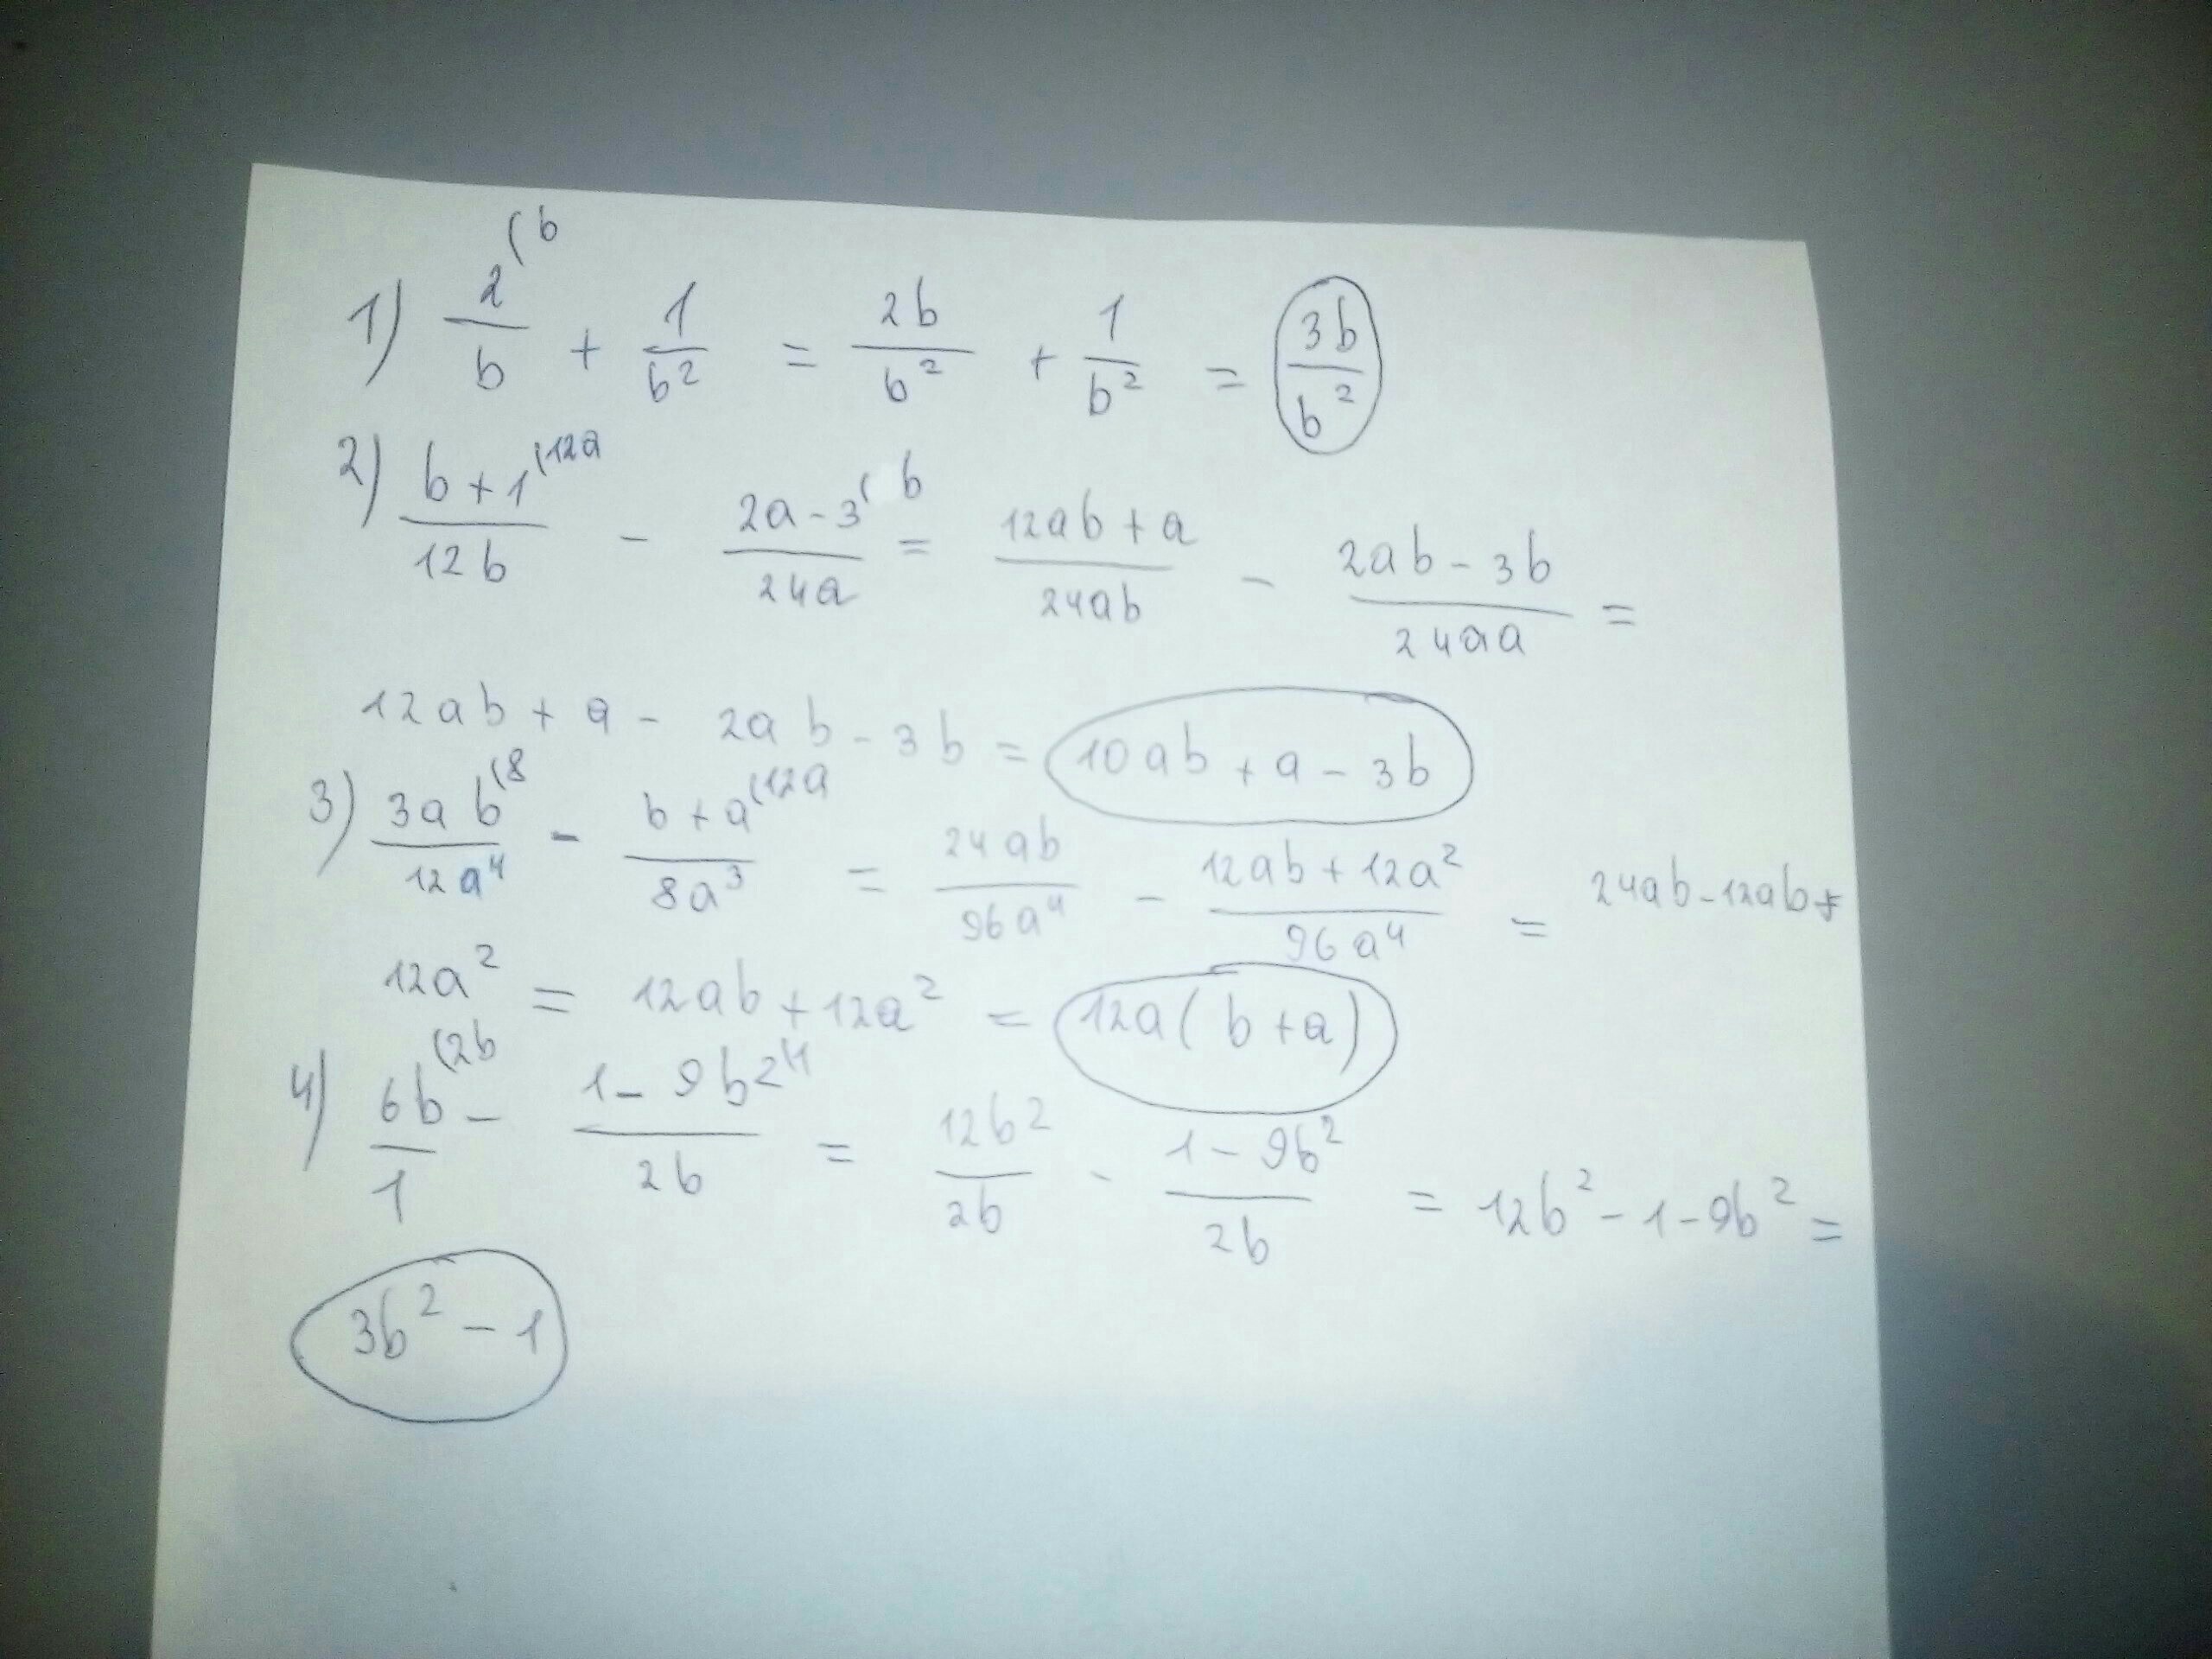 1) 2(b/b + 1/b² = 2b/b² + 1/b² = 3b/b²
2) b+1(12a/12b - 2a-3(b/24a = 12ab+a/24ab - 2ab-3b/24aa =
12ab+a - 2ab-3b = 10ab+a-3b
3) 3ab(8/12a⁴ - b+a(12a/8a³ = 24ab/96a⁴ - 12ab+12a²/96a⁴ = 24ab-12ab+
12a² = 12ab+12a² = 12a(b+a)
4) 6b(2b/1 - 1-9b²(1/2b = 12b²/2b - 1-9b²/2b = 12b²-1-9b² =
3b²-1